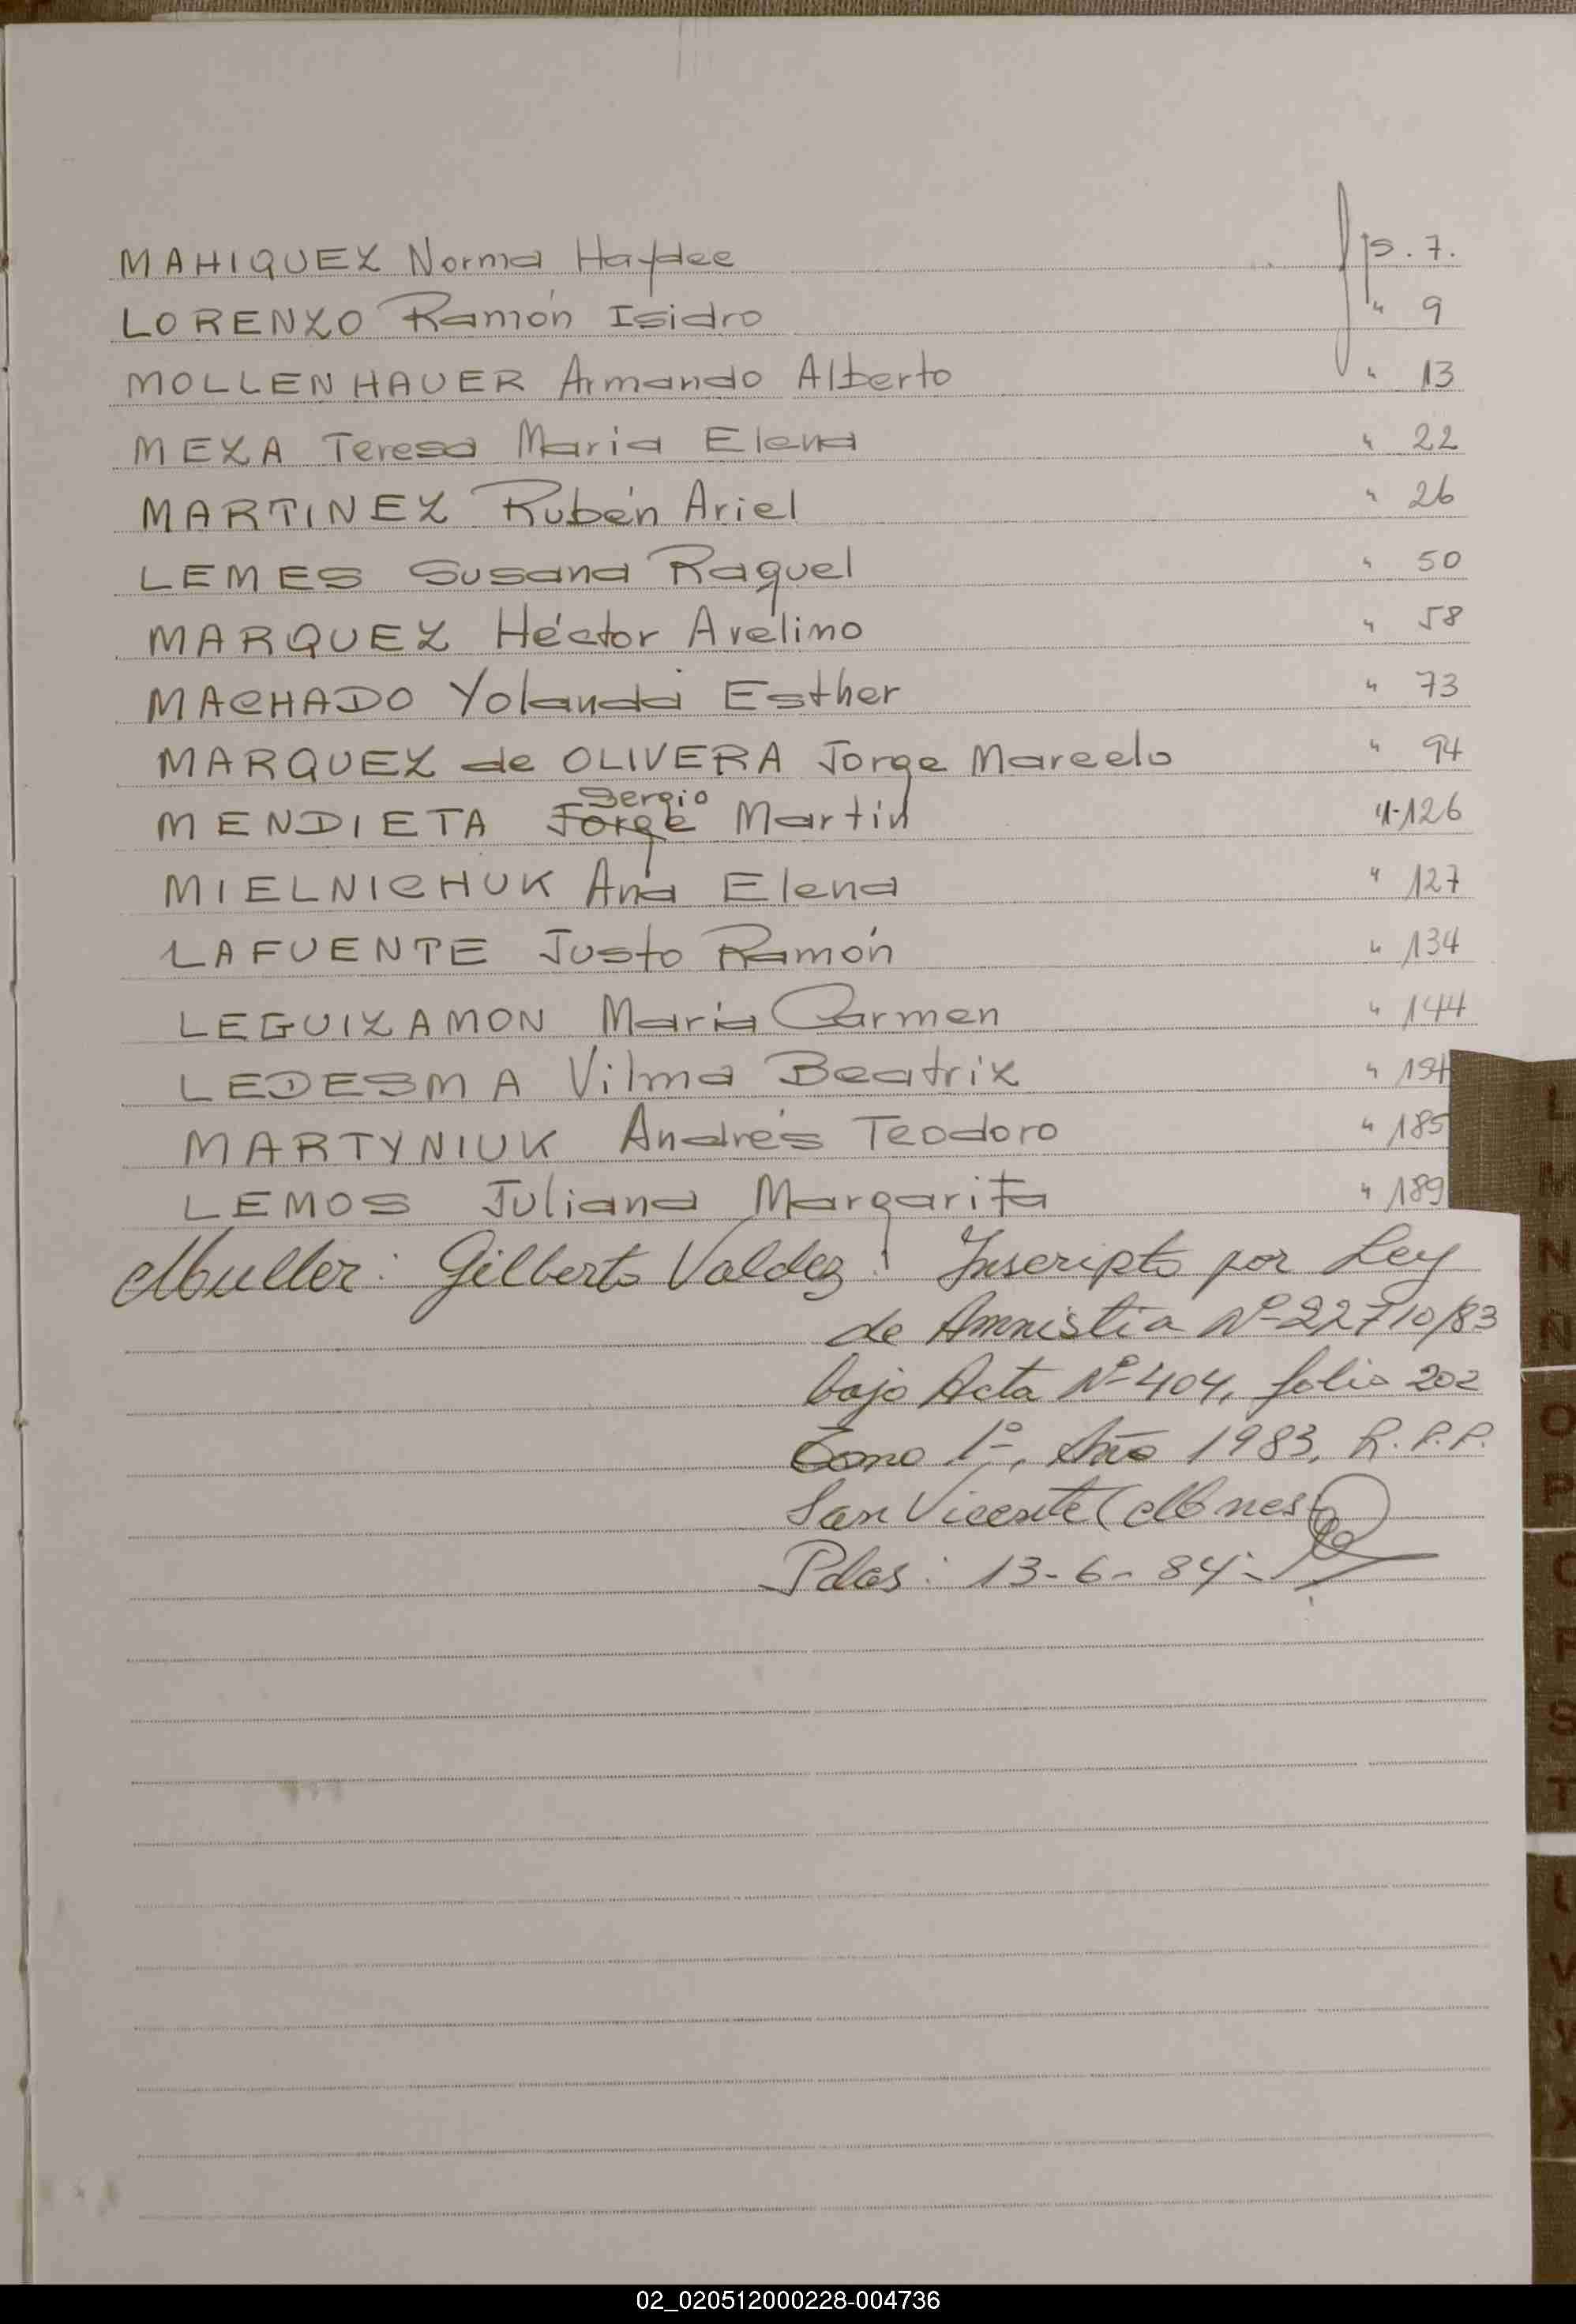 MAHIQUEZ Norma Haydee fs. 7.
LORENZO Ramón Isidro " 9
MOLLENHAUER Armando Alberto " 13
MEZA Teresa Maria Elena " 22
MARTINEZ Rubén Ariel " 26
LEMES Susana Raquel " 50
MARQUEZ Héctor Avelino " 58
MACHADO Yolanda Esther " 73
MARQUEZ de OLIVERA Jorge Marcelo " 94
Sergio
MENDIETA Jorge Martin "-126
MIELNICHUK Ana Elena " 127
LAFUENTE Justo Ramón " 134
LEGUIZAMON Maria Carmen " 144
LEDESMA Vilma Beatriz "
MARTYNIUK Andrés Teodoro " 185
LEMOS Juliana Margarita " 189
Muller: Gilberto Valdez: Inscripto por Ley
de Amnistia Nº 22710/83
bajo Acta Nº 404, folio 202
Tomo 1º, Año 1983, R.P.P.
San Vicente (Mnes)
Pdas: 13-6-84.-
L
M
N
Ñ
O
P
Q
R
S
T
U
V
Y
X
02_020512000228-004736